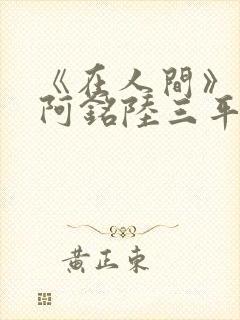 《在人間》
阿銘陸三年
黃正東